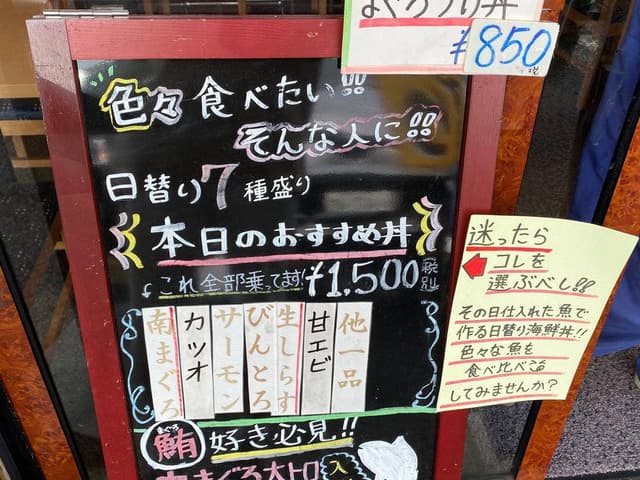 まぐろづけ丼
¥850
税
色々食べたい!!
そんな人に!!
日替り7種盛り
本日のおすすめ丼
これ全部乗ってます! ¥1,500(税別)
他一品
甘エビ
生しらす
びんとろ
サーモン
カツオ
南まぐろ
まぐろ
鮪好き必見!!
まぐろ大トロ入
迷ったら
コレを
選ぶべし!!
その日仕入れた魚で
作る日替り海鮮丼!!
色々な魚を
食べ比べ
してみませんか?